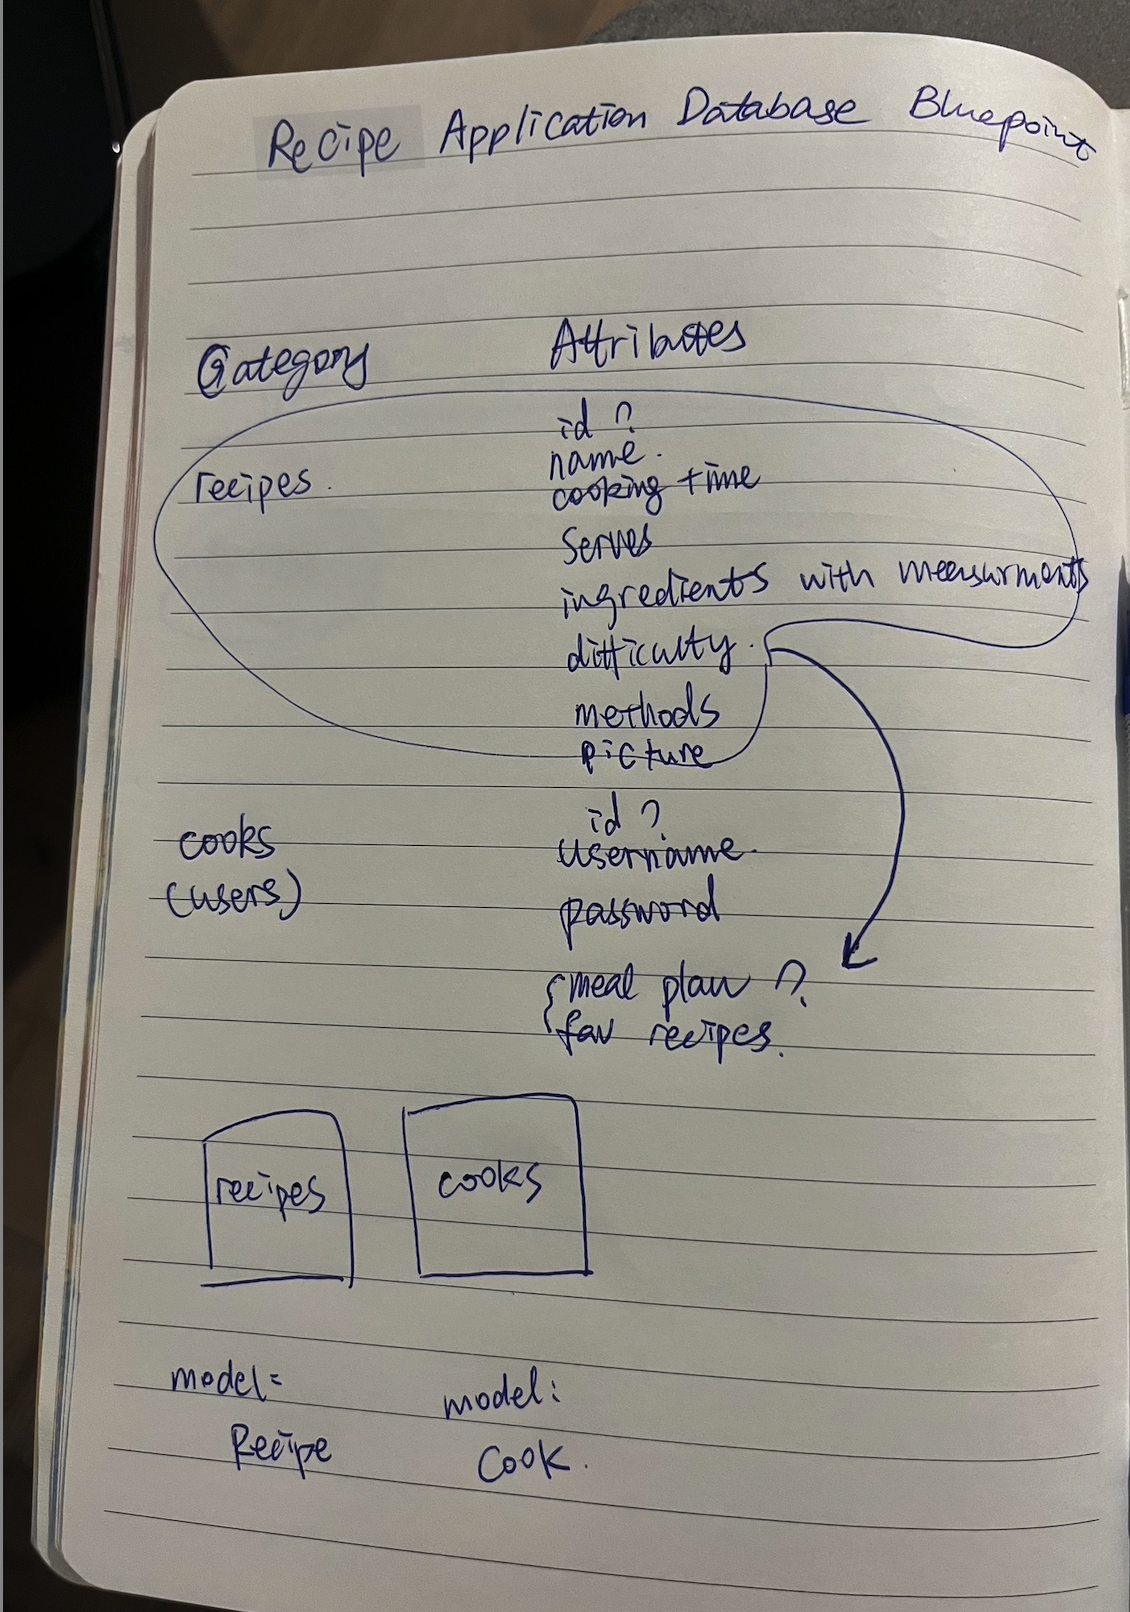 Recipe Application Database Bluepoint
Category Attributes
id ?
name.
recipes.
cooking time
Serves
ingredients with measurments
difficulty.
methods
picture
id ?
cooks
username.
(users)
password
{ meal plan ?.
fav recipes.
recipes cooks
model: model:
Recipe Cook.